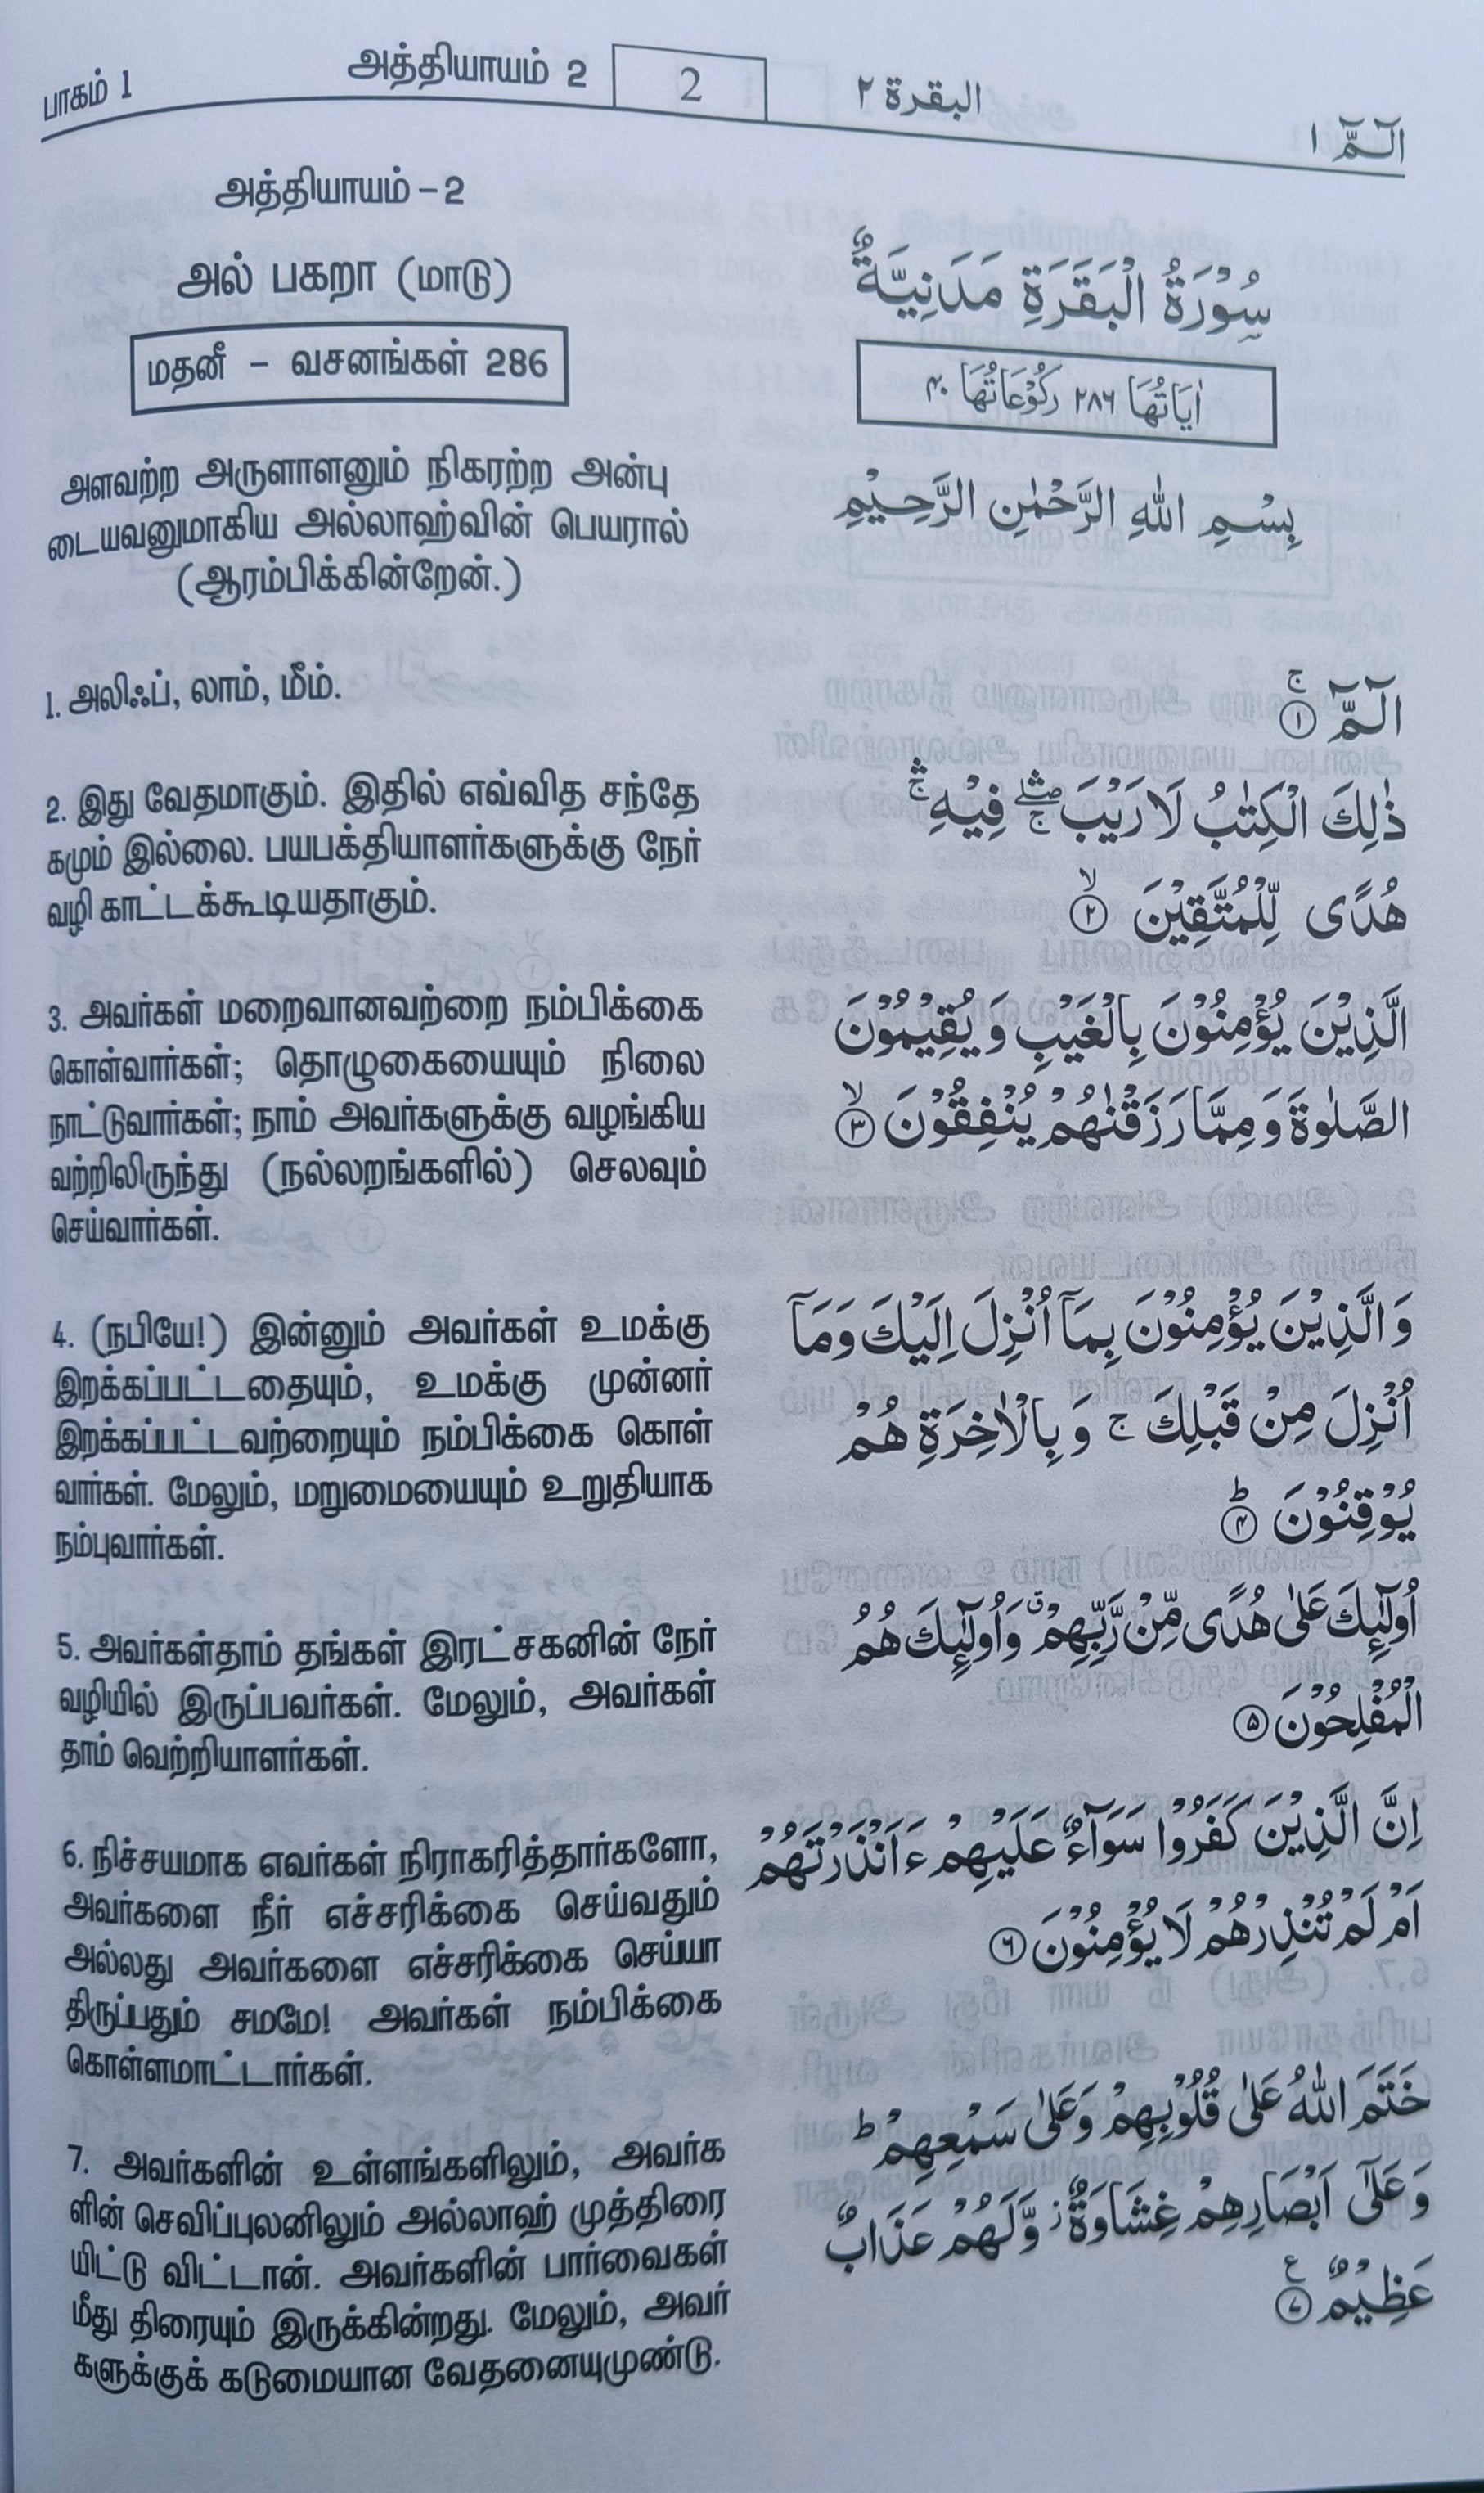 பாகம் 1
அத்தியாயம் 2
2
البقرة ٢
الٓمّٓ ١
அத்தியாயம் – 2
அல் பகறா (மாடு)
மதனீ – வசனங்கள் 286
அளவற்ற அருளாளனும் நிகரற்ற அன்பு
டையவனுமாகிய அல்லாஹ்வின் பெயரால்
(ஆரம்பிக்கின்றேன்.)
1. அலிஃப், லாம், மீம்.
2. இது வேதமாகும். இதில் எவ்வித சந்தே
கமும் இல்லை. பயபக்தியாளர்களுக்கு நேர்
வழி காட்டக்கூடியதாகும்.
3. அவர்கள் மறைவானவற்றை நம்பிக்கை
கொள்வார்கள்; தொழுகையையும் நிலை
நாட்டுவார்கள்; நாம் அவர்களுக்கு வழங்கிய
வற்றிலிருந்து (நல்லறங்களில்) செலவும்
செய்வார்கள்.
4. (நபியே!) இன்னும் அவர்கள் உமக்கு
இறக்கப்பட்டதையும், உமக்கு முன்னர்
இறக்கப்பட்டவற்றையும் நம்பிக்கை கொள்
வார்கள். மேலும், மறுமையையும் உறுதியாக
நம்புவார்கள்.
5. அவர்கள்தாம் தங்கள் இரட்சகனின் நேர்
வழியில் இருப்பவர்கள். மேலும், அவர்கள்
தாம் வெற்றியாளர்கள்.
6. நிச்சயமாக எவர்கள் நிராகரித்தார்களோ,
அவர்களை நீர் எச்சரிக்கை செய்வதும்
அல்லது அவர்களை எச்சரிக்கை செய்யா
திருப்பதும் சமமே! அவர்கள் நம்பிக்கை
கொள்ளமாட்டார்கள்.
7. அவர்களின் உள்ளங்களிலும், அவர்க
ளின் செவிப்புலனிலும் அல்லாஹ் முத்திரை
யிட்டு விட்டான். அவர்களின் பார்வைகள்
மீது திரையும் இருக்கின்றது. மேலும், அவர்
களுக்குக் கடுமையான வேதனையுமுண்டு.
سُوْرَةُ الْبَقَرَةِ مَدَنِيَّةٌ
اٰيَاتُهَا ٢٨٦ رُكُوْعَاتُهَا ٤٠
بِسْمِ اللّٰهِ الرَّحْمٰنِ الرَّحِيْمِ
الٓمّٓ ۚ ①
ذٰلِكَ الْكِتٰبُ لَا رَيْبَ ۛۚ فِيْهِ ۛۚ
هُدًى لِّلْمُتَّقِيْنَ ۙ ②
الَّذِيْنَ يُؤْمِنُوْنَ بِالْغَيْبِ وَ يُقِيْمُوْنَ
الصَّلٰوةَ وَ مِمَّا رَزَقْنٰهُمْ يُنْفِقُوْنَ ۙ ③
وَ الَّذِيْنَ يُؤْمِنُوْنَ بِمَاۤ اُنْزِلَ اِلَيْكَ وَ مَاۤ
اُنْزِلَ مِنْ قَبْلِكَ ۚ وَ بِالْاٰخِرَةِ هُمْ
يُوْقِنُوْنَ ؕ ④
اُولٰٓئِكَ عَلٰى هُدًى مِّنْ رَّبِّهِمْ ۗ وَ اُولٰٓئِكَ هُمُ
الْمُفْلِحُوْنَ ⑤
اِنَّ الَّذِيْنَ كَفَرُوْا سَوَآءٌ عَلَيْهِمْ ءَاَنْذَرْتَهُمْ
اَمْ لَمْ تُنْذِرْهُمْ لَا يُؤْمِنُوْنَ ⑥
خَتَمَ اللّٰهُ عَلٰى قُلُوْبِهِمْ وَ عَلٰى سَمْعِهِمْ ؕ
وَ عَلٰۤى اَبْصَارِهِمْ غِشَاوَةٌ ؗ وَّ لَهُمْ عَذَابٌ
عَظِيْمٌ ۧ ⑦